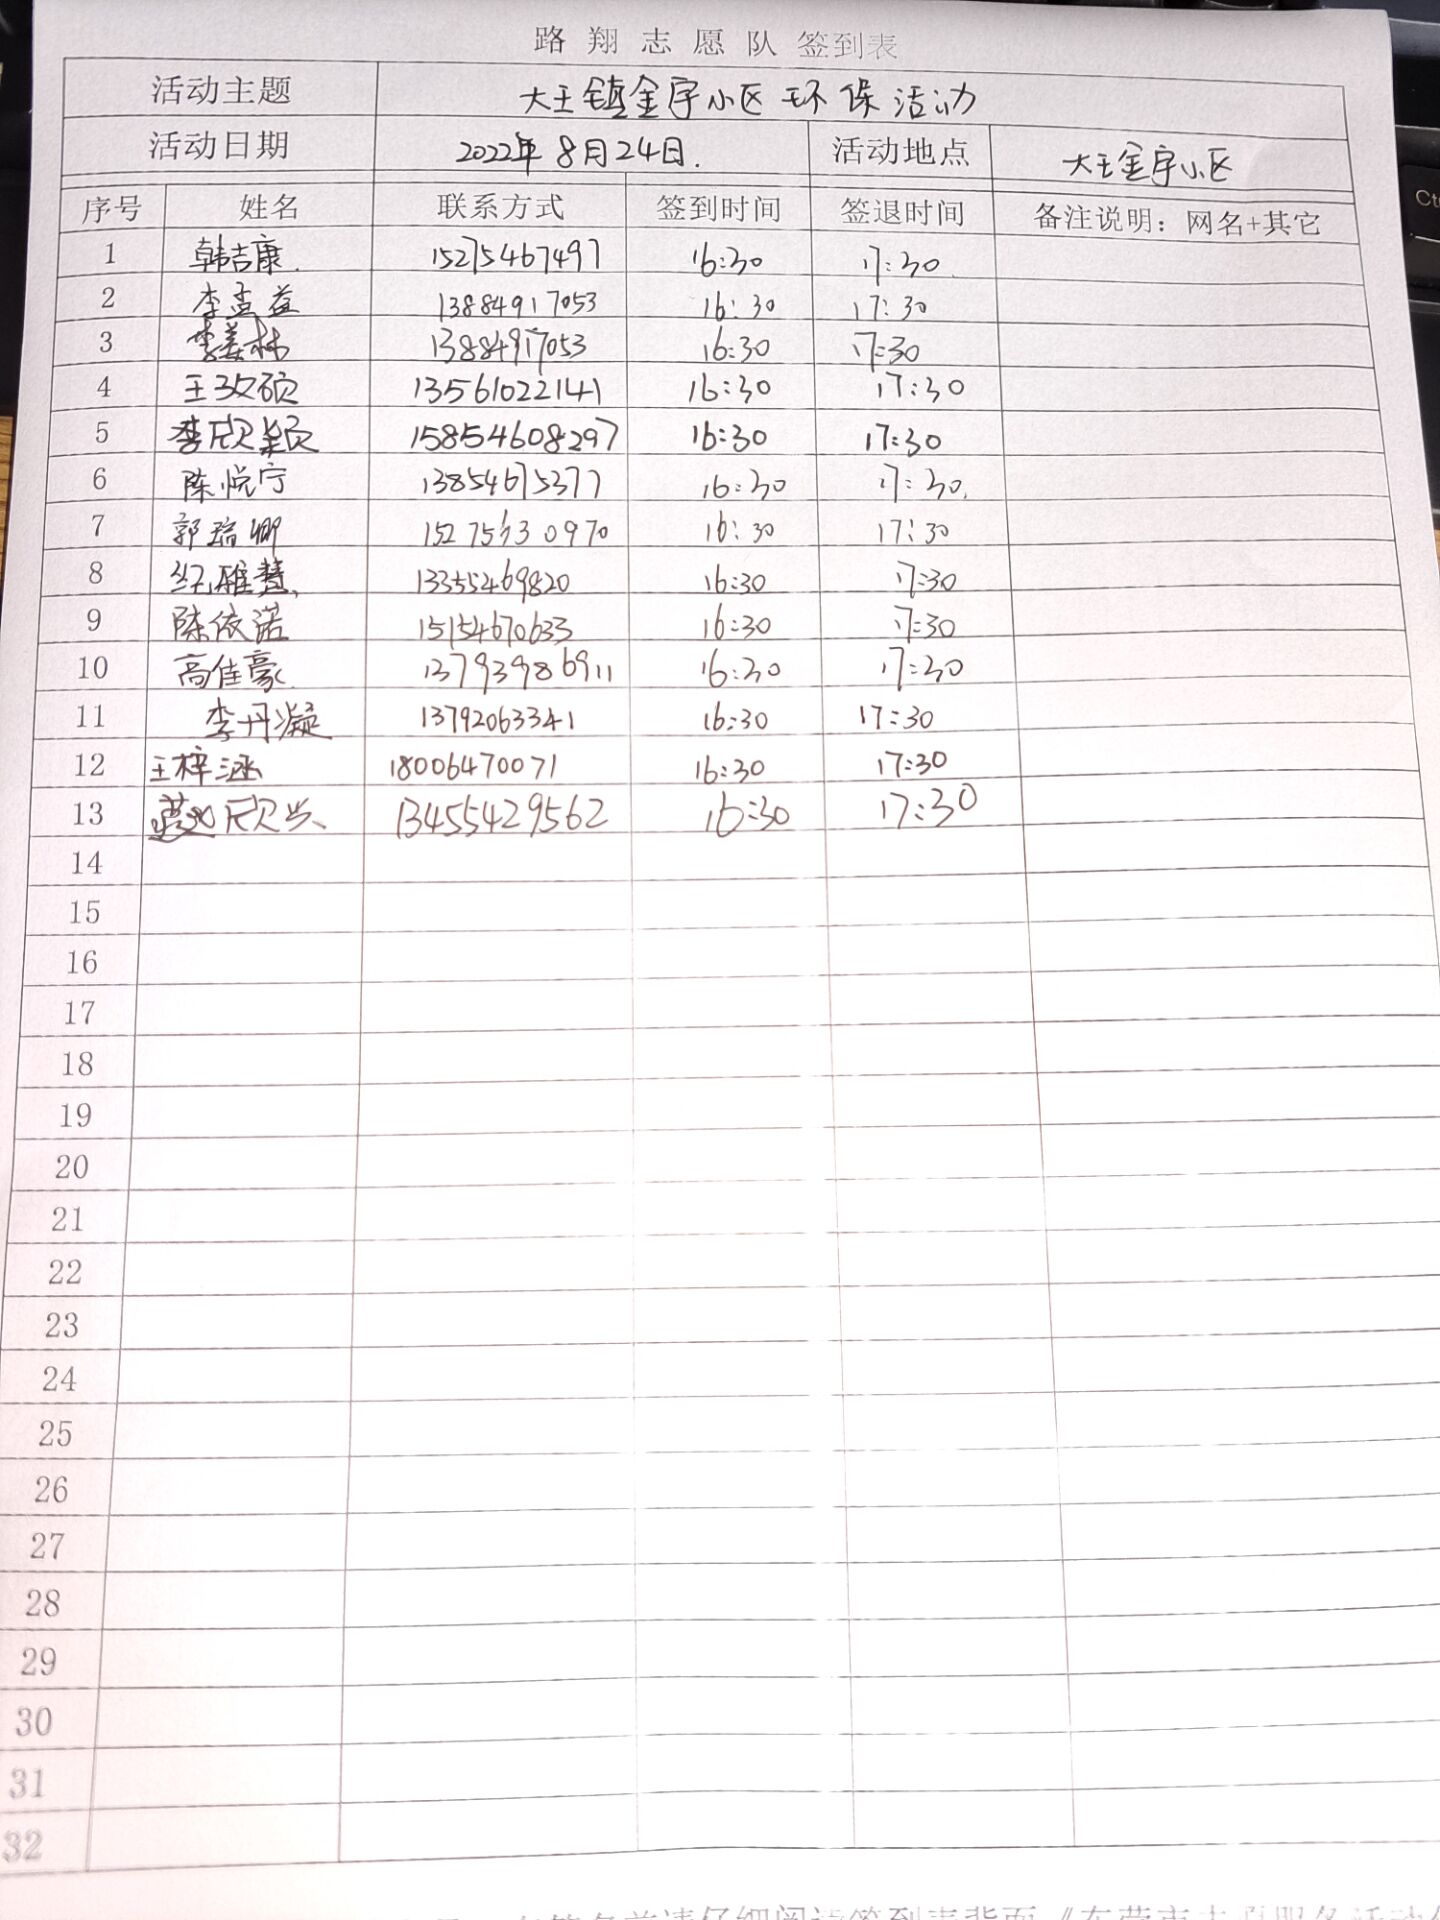 路翔志愿队签到表
活动主题 大王镇金宇小区环保活动
活动日期 2022年8月24日. 活动地点 大王金宇小区
序号 姓名 联系方式 签到时间 签退时间 备注说明：网名+其它
1 韩吉康. 15275467497 16:30 17:30
2 李孟益 13884917053 16:30 17:30
3 李姜林 13884917053 16:30 17:30
4 王玫硕 13561022141 16:30 17:30
5 李欣颖 15854608297 16:30 17:30
6 陈悦宁 13854675377 16:30 17:30.
7 郭瑞卿 15275530970 16:30 17:30
8 纪雅慧 13355469820 16:30 17:30
9 陈依诺 15154670633 16:30 17:30
10 高佳豪 13793986911 16:30 17:30
11 李丹凝 13792063341 16:30 17:30
12 王梓涵 18006470071 16:30 17:30
13 欣 13455429562 16:30 17:30
14
15
16
17
18
19
20
21
22
23
24
25
26
27
28
29
30
31
32